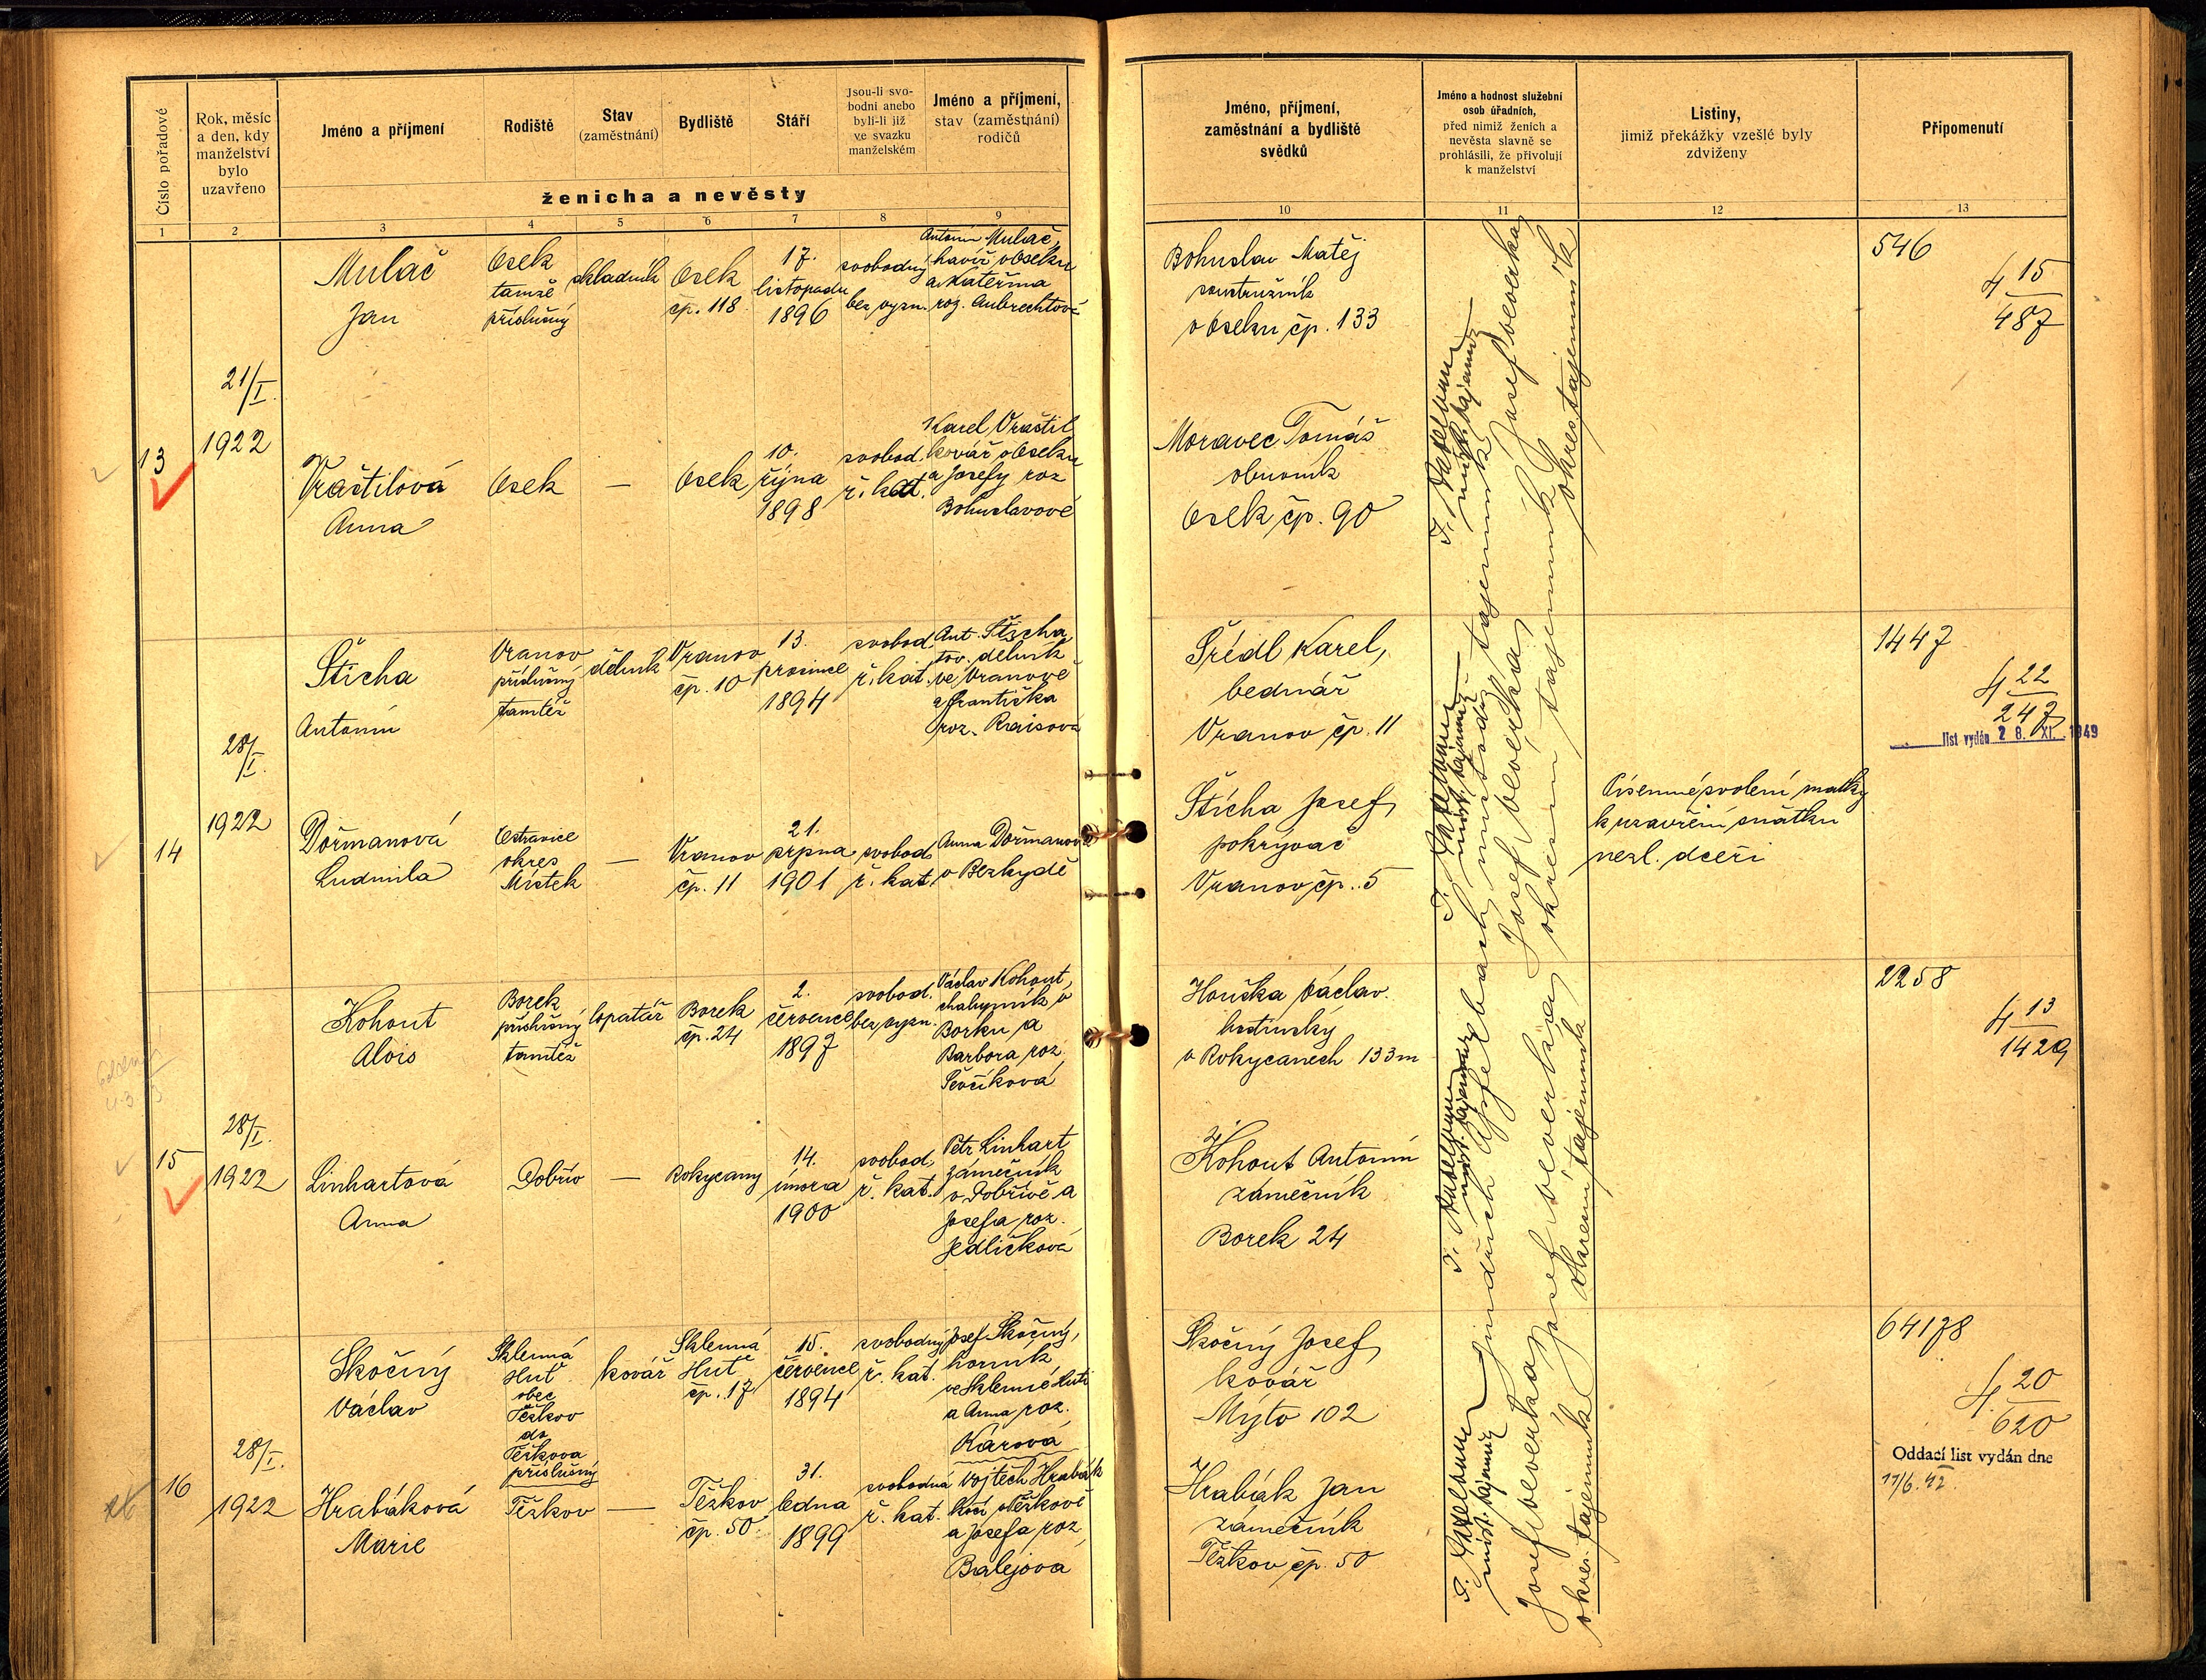 Číslo pořadové
Rok, měsíc
a den, kdy
manželství
bylo
uzavřeno
Jméno a příjmení
Rodiště
Stav
(zaměstnání)
Bydliště
Stáří
Jsou-li svo-
bodni anebo
byli-li již
ve svazku
manželském
Jméno a příjmení,
stav (zaměstnání)
rodičů
ženicha a nevěsty
1
2
3
4
5
6
7
8
9
Jméno, příjmení,
zaměstnání a bydliště
svědků
Jméno a hodnost služební
osob úřadních,
před nimiž ženich a
nevěsta slavně se
prohlásili, že přivolují
k manželství
Listiny,
jimiž překážky vzešlé byly
zdviženy
Připomenutí
10
11
12
13
13
21/I.
1922
Mulač
Jan
Osek
tamže
příslušný
skladník
Osek
čp. 118
17.
listopadu
1896
svobodný
bez vyzn.
Antonín Mulač,
havíř v Oseku
a Kateřina
roz. Aubrechtová
Vraštilová
Anna
Osek
—
Osek
10.
října
1898
svobod.
ř. kat.
Karel Vraštil
kovář v Oseku
a Josefy roz
Bohuslavové
Bohuslav Matěj
soustružník
v Oseku čp. 133
Moravec Tomáš
obuvník
Osek čp. 90
546
4 15
487
14
28/I.
1922
Šticha
Antonín
Vranov
příslušný
tamtéž
dělník
Vranov
čp. 10
13.
prosince
1894
svobod.
ř. kat.
Ant. Šticha,
tov. dělník
ve Vranově
a Františka
roz. Raisová
Dořmanová
Ludmila
Ostravice
okres
Místek
—
Vranov
čp. 11
21.
srpna
1901
svobod.
ř. kat.
Anna Dořmanová
v Bezkydě
Šrédl Karel,
bednář
Vranov čp. 11
Šticha Josef,
pokrývač
Vranov čp. 5
Písemné svolení matky
k uzavření sňatku
nezl. dceři
1447
4 22
247
list vydán 28. XI. 1949
15
28/I.
1922
Kohout
Alois
Borek
příslušný
tamtéž
lopatář
Borek
čp. 24
2.
července
1897
svobod.
bez vyzn.
Václav Kohout,
chalupník v
Borku a
Barbora roz.
Ševčíková
Linhartová
Anna
Dobřív
—
Rokycany
14.
února
1900
svobod.
ř. kat.
Petr Linhart
zámečník
v Dobřívě a
Josefa roz.
Jedličková
Houška Václav.
hostinský
v Rokycanech 133m
Kohout Antonín
zámečník
Borek 24
2258
4 13
1429
16
28/I.
1922
Skočný
Václav
Sklenná
Huť
obec
Těškov
do
Těškova
příslušný
kovář
Sklenná
Huť
čp. 17
15.
července
1894
svobodný
ř. kat.
Josef Skočný,
horník
ve Sklenné Huti
a Anna roz.
Kárová
Hrabáková
Marie
Těškov
—
Těškov
čp. 50
31.
ledna
1899
svobodná
ř. kat.
Vojtěch Hrabák
kočí v Těškově
a Josefa roz.
Balejová
Skočný Josef,
kovář
Mýto 102
Hrabák Jan
zámečník
Těškov čp. 50
64178
4 20
620
Oddací list vydán dne
17/6. 42.
Josef Veverka,
okres. tajemník